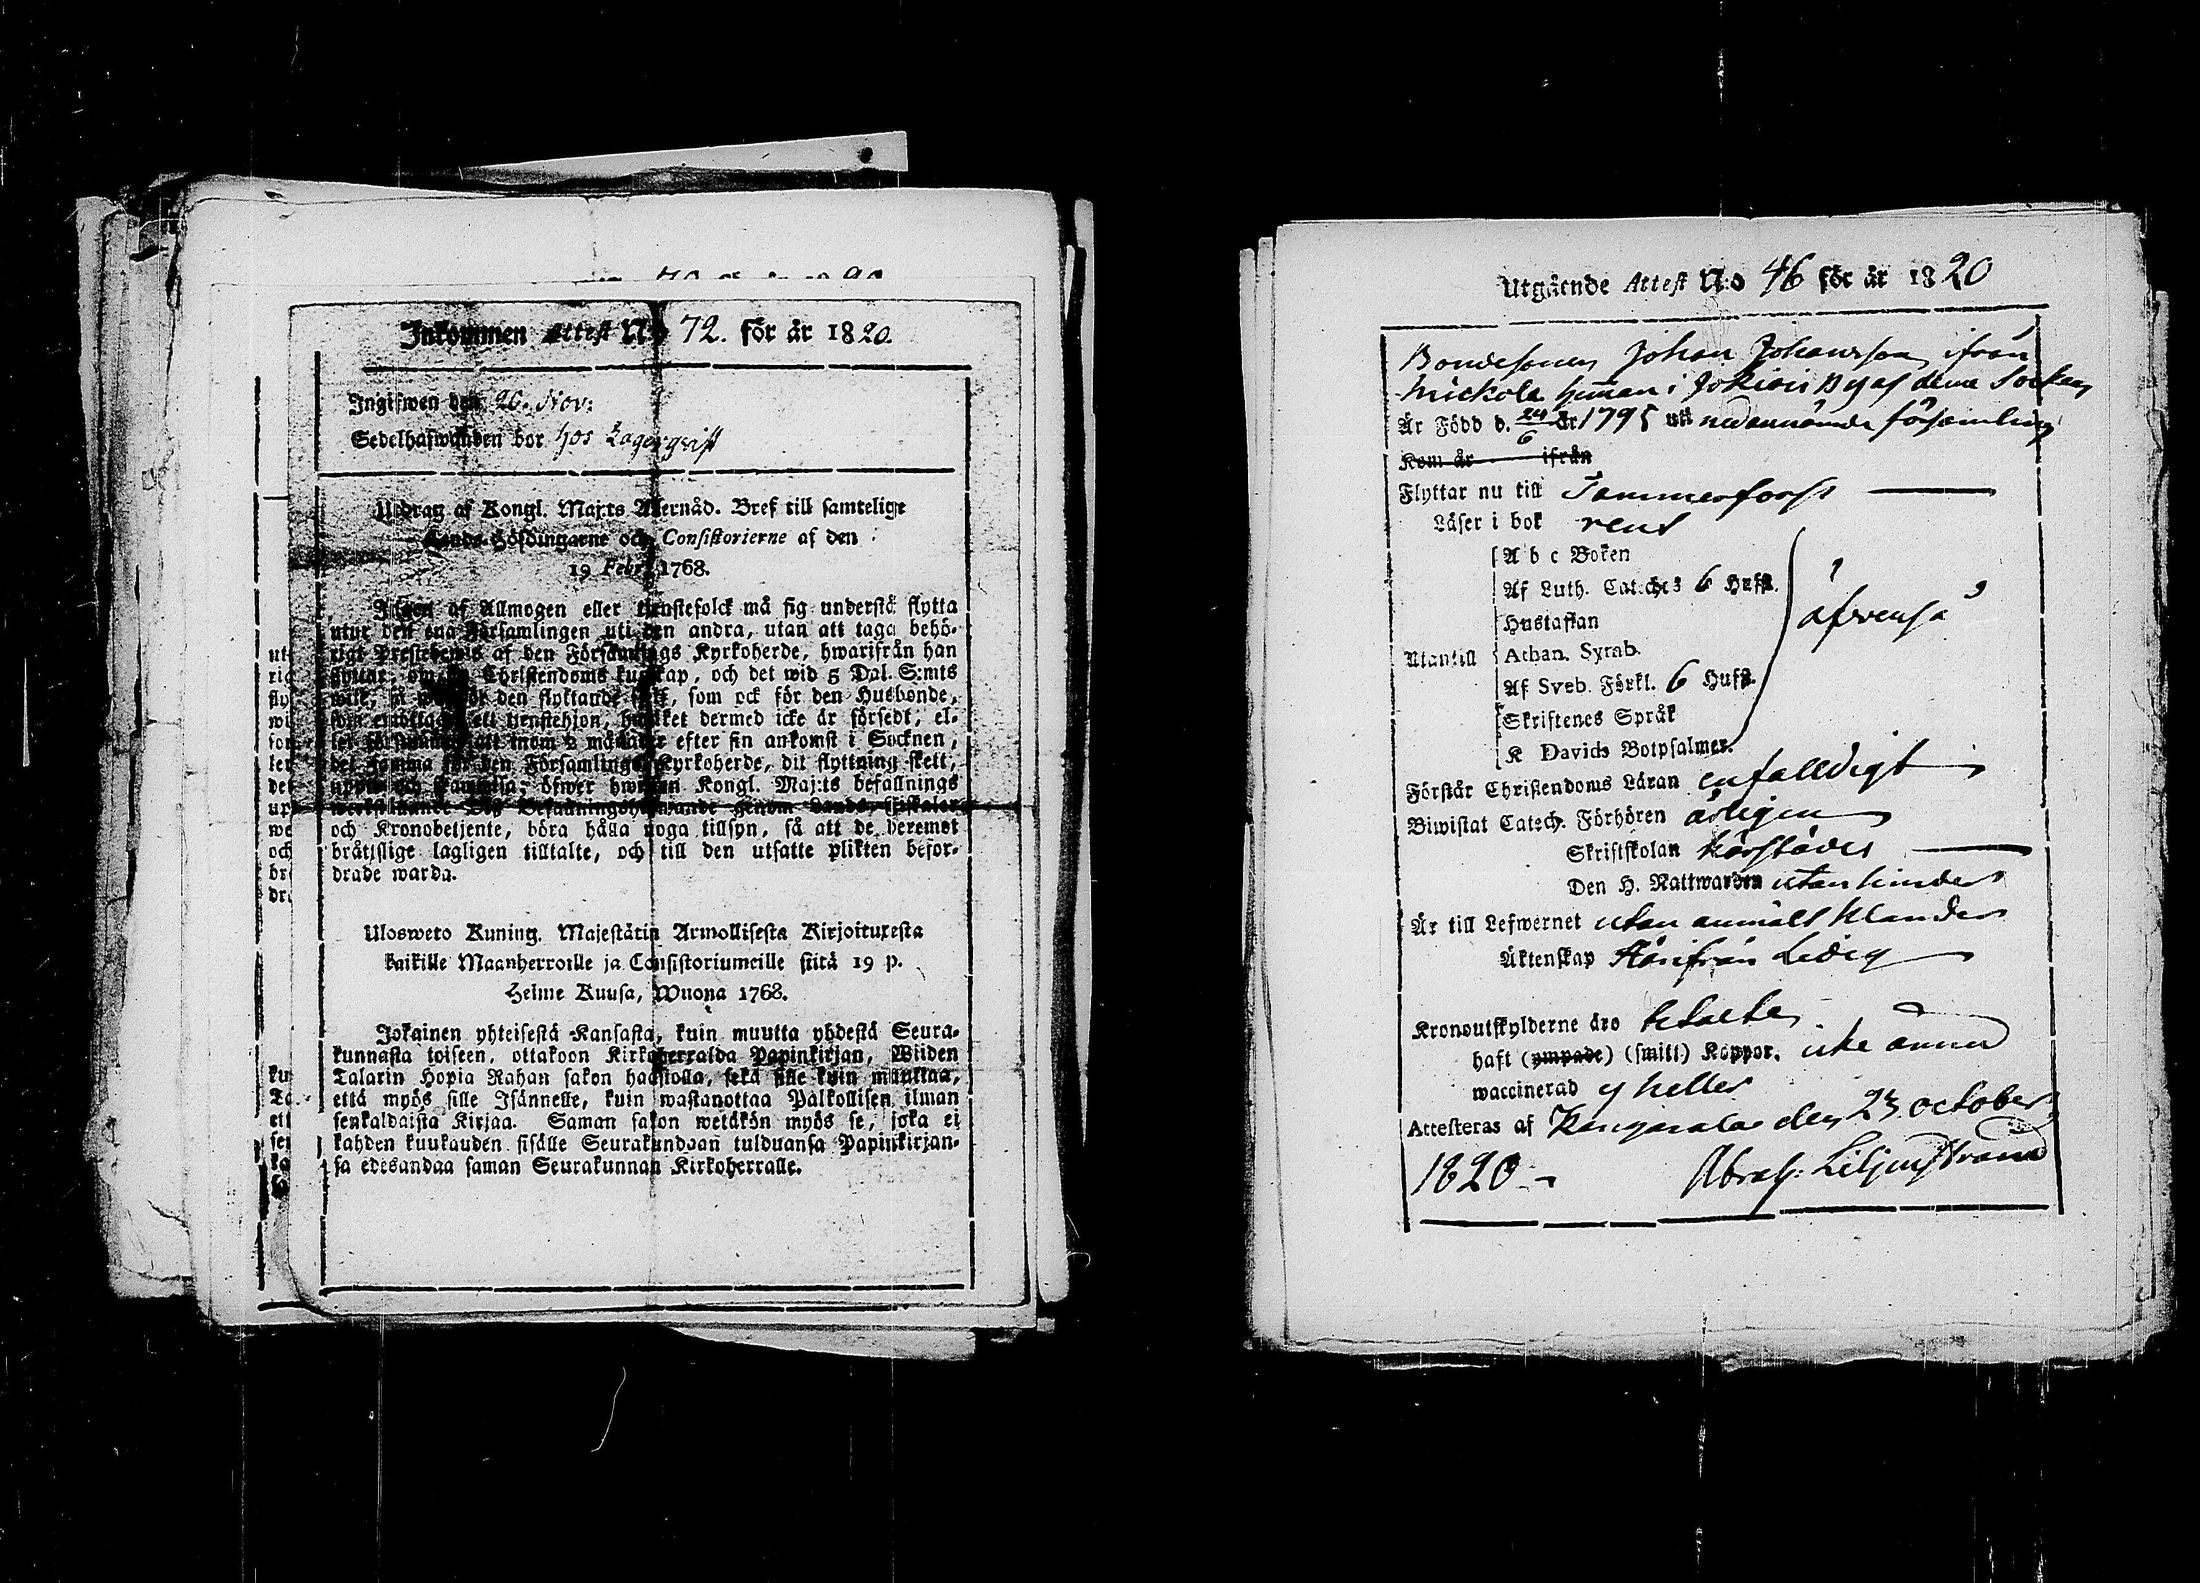 Inkommen Attest N:o 72. för år 1820.
Ingifwen den 20. Nov:
Sedelhafwanden bor hos Lagerqvist
Utdrag af Kongl. Maj:ts Allernåd. Bref till samtelige
Lands-Höfdingarne och Consistorierne af den
19 Febr. 1768.
Ingen af Allmogen eller tienstefolck må sig understå flytta
utur den ena Församlingen uti den andra, utan att taga behö-
rigt Prestebewis af den Församlings Kyrkoherde, hwarifrån han
flyttar, om sin Christendoms kunskap, och det wid 5 Dal. S:mts
wite, så wäl för den flyttande sielf, som ock för den Husbonde,
som emottager ett tienstehjon, hwilket dermed icke är försedt, el-
ler försummar att inom 2 månader efter sin ankomst i Socknen,
det samma för den Församlings Kyrkoherde, dit flyttning skett,
uppte och framwisa; öfwer hwilken Kongl. Maj:ts befallnings
werkställande Deß Befallningshafwande genom Lands-Fiskaler
och Kronobetjente, böra hålla noga tillsyn, så att de deremot
bråtzlige lagligen tilltalte, och till den utsatte plikten befor-
drade warda.
Ulosweto Kuning. Majestätin Armollisesta Kirjoituxesta
kaikille Maanherroille ja Consistoriumeille siitä 19 p.
Helme Kuusa, Wuona 1768.
Jokainen yhteisestä Kansasta, kuin muutta yhdestä Seura-
kunnasta toiseen, ottakoon Kirkoherralda Papinkirjan, Wiiden
Talarin Hopia Rahan sakon haastolla, sekä sille kuin muuttaa,
että myös sille Isännelle, kuin wastanottaa Palkollisen ilman
senkaldaista Kirjaa. Saman sakon wetäkön myös se, joka ei
kahden kuukauden sisälle Seurakundaan tulduansa Papinkirjan-
sa edesandaa saman Seurakunnan Kirkoherralle.
Utgående Attest N:o 46 för år 1820
Bondesonen Johan Johansson ifrån
Mickola hemman i Jokiois By af denna Socken
Är Född d. 24/6 år 1795 uti nedannämde församling
Kom år ifrån
Flyttar nu till Tammerfors
Läser i bok rent
Utantill
A b c Boken
Af Luth. Cateches 6 Hufst.
Hustaflan
Athan. Symb.
Af Sveb. Förkl. 6 Hufst.
Skriftenes Språk
K Davids Botpsalmer.
äfvenså
Förstår Christendoms Läran enfalldigt
Biwistat Catech. Förhören årligen
Skriftskolan härstädes
Den H. Nattwarden utan hinder
Är till Lefwernet utan anmält klander
Äktenskap Härifrån Ledig
Kronoutskylderne äro betalte
haft (ympade) (smitt) Koppor. icke ännu
waccinerad ej heller
Attesteras af Kangasala den 23 october
1820 - Abrah: Liljenstrand